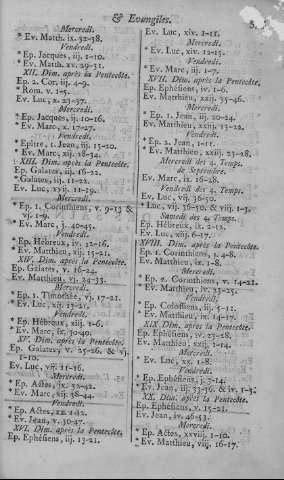 & Evangiles.
Mercredi.
* Ev. Matth. ix. 32-38.
Vendredi.
* Ep. Jacques, iij. 1-10.
* Ev. Matth. xv. 29-31.
XII. Dim. après la Pentecôte.
* Ep. 2. Cor. iij. 4-9.
* Rom. v. 1-5.
Ev. Luc, x. 23-37.
Mercredi.
* Ep. Jacques, iij. 10-16.
* Ev. Marc, x. 17-27.
Vendredi.
* Epître, 1. Jean, iij. 15-20.
* Ev. Marc, xij. 28-34.
XIII. Dim. après la Pentecôte.
Ep. Galates, iij. 16-22.
* Galates, iij. 11-22.
Ev. Luc, xvij. 11-19.
Mercredi.
* Ep. 1. Corinthiens, v. 9-13 &
vj. 1-9.
* Ev. Marc, j. 40-45.
Vendredi.
* Ep. Hébreux, iv. 12-16.
* Ev. Matthieu, xij. 15-21.
XIV. Dim. après la Pentecôte.
Ep. Galates, v. 16-24.
Ev. Matthieu, vj. 24-33.
Mercredi.
* Ep. 1. Timothée, vj. 17-21.
* Ev. Luc, xij. 13-21.
Vendredi.
* Ep. Hébreux, xiij. 1-6.
* Ev. Marc, jx. 30-40.
XV. Dim. après la Pentecôte.
Ep. Galates, v. 25-26 & vj.
1-10.
Ev. Luc, vij. 11-16.
Mercredi.
* Ep. Actes, ix. 32-42.
* Ev. Marc, xij. 38-44.
Vendredi.
* Ep. Actes, xx. 1-12.
* Ev. Jean, v. 30-47.
XVI. Dim. après la Pentecôte.
Ep. Ephésiens, iij. 13-21.
Ev. Luc, xiv. 1-11.
Mercredi.
* Ev. Luc, xiv. 12-15.
Vendredi.
* Ev. Marc, iij. 1-7.
XVII. Dim. après la Pentecôte.
Ep. Ephésiens, iv. 1-6.
Ev. Matthieu, xxij. 35-46.
Mercredi.
* Ep. 1. Jean, iij. 20-24.
Ev. Matthieu, xxiij. 13-22.
Vendredi.
* Ep. 2. Jean, 1-11.
* Ev. Matthieu, xxiij. 23-28.
Mercredi des 4. Temps
de Septembre.
Ev. Marc, ix. 16-28.
Vendredi des 4. Temps.
Ev. Luc, vij. 36-50.
* Luc, vij. 36-50, & viij. 1-3.
Samedi des 4. Temps.
Ep. Hébreux, ix. 2-12.
Ev. Luc, xiij. 6-17.
XVIII. Dim. après la Pentecôte.
Ep. 1. Corinthiens, j. 4-8.
Ev. Matthieu, ix. 1-8.
Mercredi.
* Ep. 2. Corinthiens, v. 14-21.
* Ev. Matthieu, iv. 23-25.
Vendredi.
* Ep. Colossiens, iij. 5-11.
XIX. Dim. après la Pentecôte.
Ev. Matthieu, xxij. 1-14.
Mercredi.
* Ev. Luc, xx. 1-8.
Vendredi.
XX. Dim. après la Pentecôte.
Ep. Ephésiens, v. 15-21.
Ev. Jean, iv. 46-53.
Mercredi.
* Ep. Actes, xxviij. 1-10.
* Ev. Matthieu, viij. 16-17.